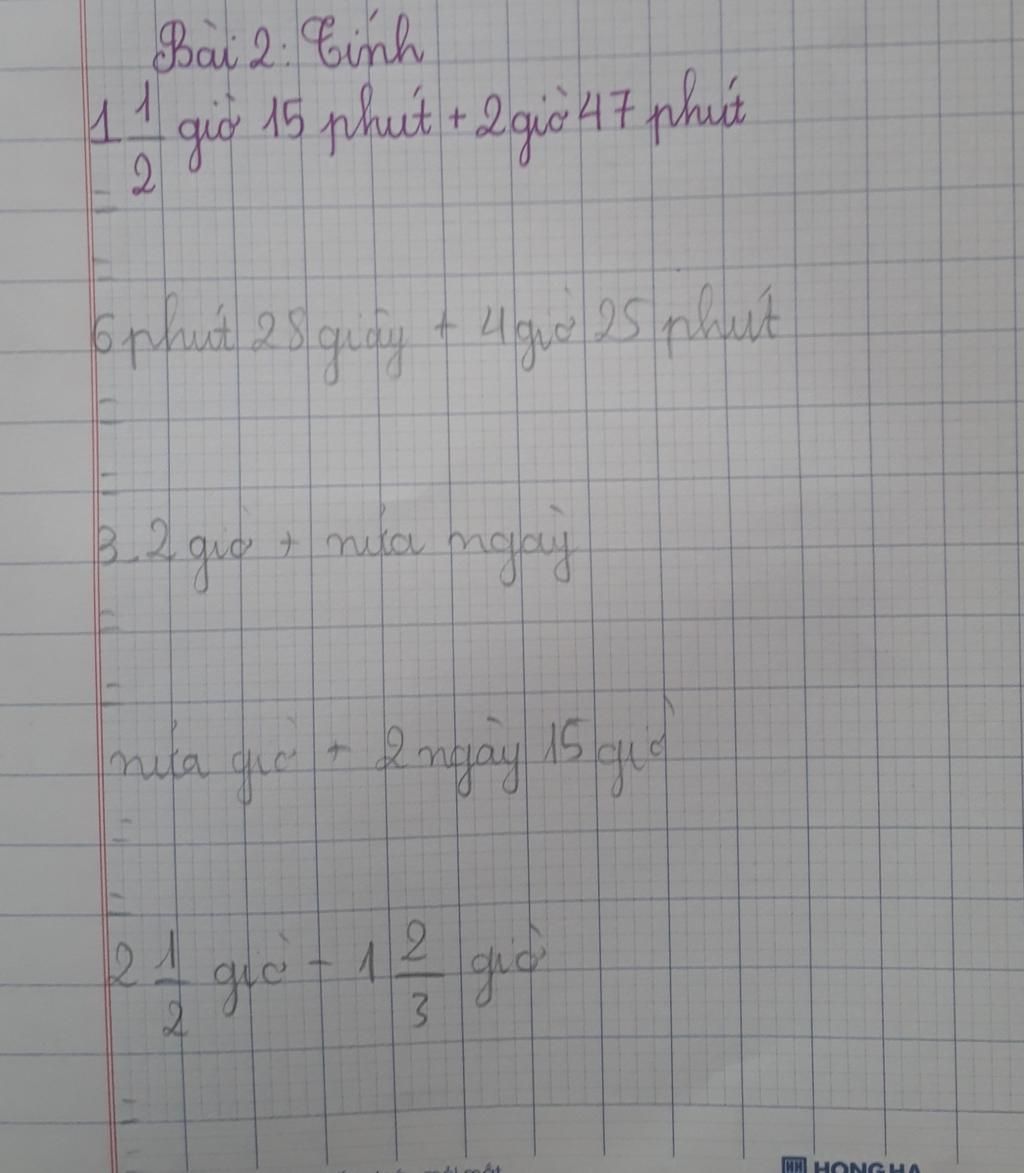 Bài 2: Tính
1 1/2 giờ 15 phút + 2 giờ 47 phút
=
=
6 phút 28 giây + 4 giờ 25 phút
=
=
3.2 giờ + nửa ngày
=
=
nửa giờ + 2 ngày 15 giờ
=
=
2 1/2 giờ - 1 2/3 giờ
=
=
HH HONG HA